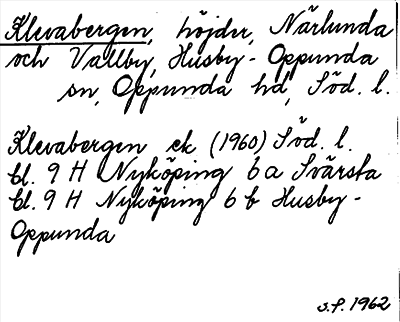 Klevabergen, höjder, Närlunda
och Vallby, Husby-Oppunda
sn, Oppunda hd, Söd. l.
Klevabergen ek (1960) Söd. l.
bl. 9 H Nyköping 6 a Svärsta
bl. 9 H Nyköping 6 b Husby-
Oppunda
S.P. 1962